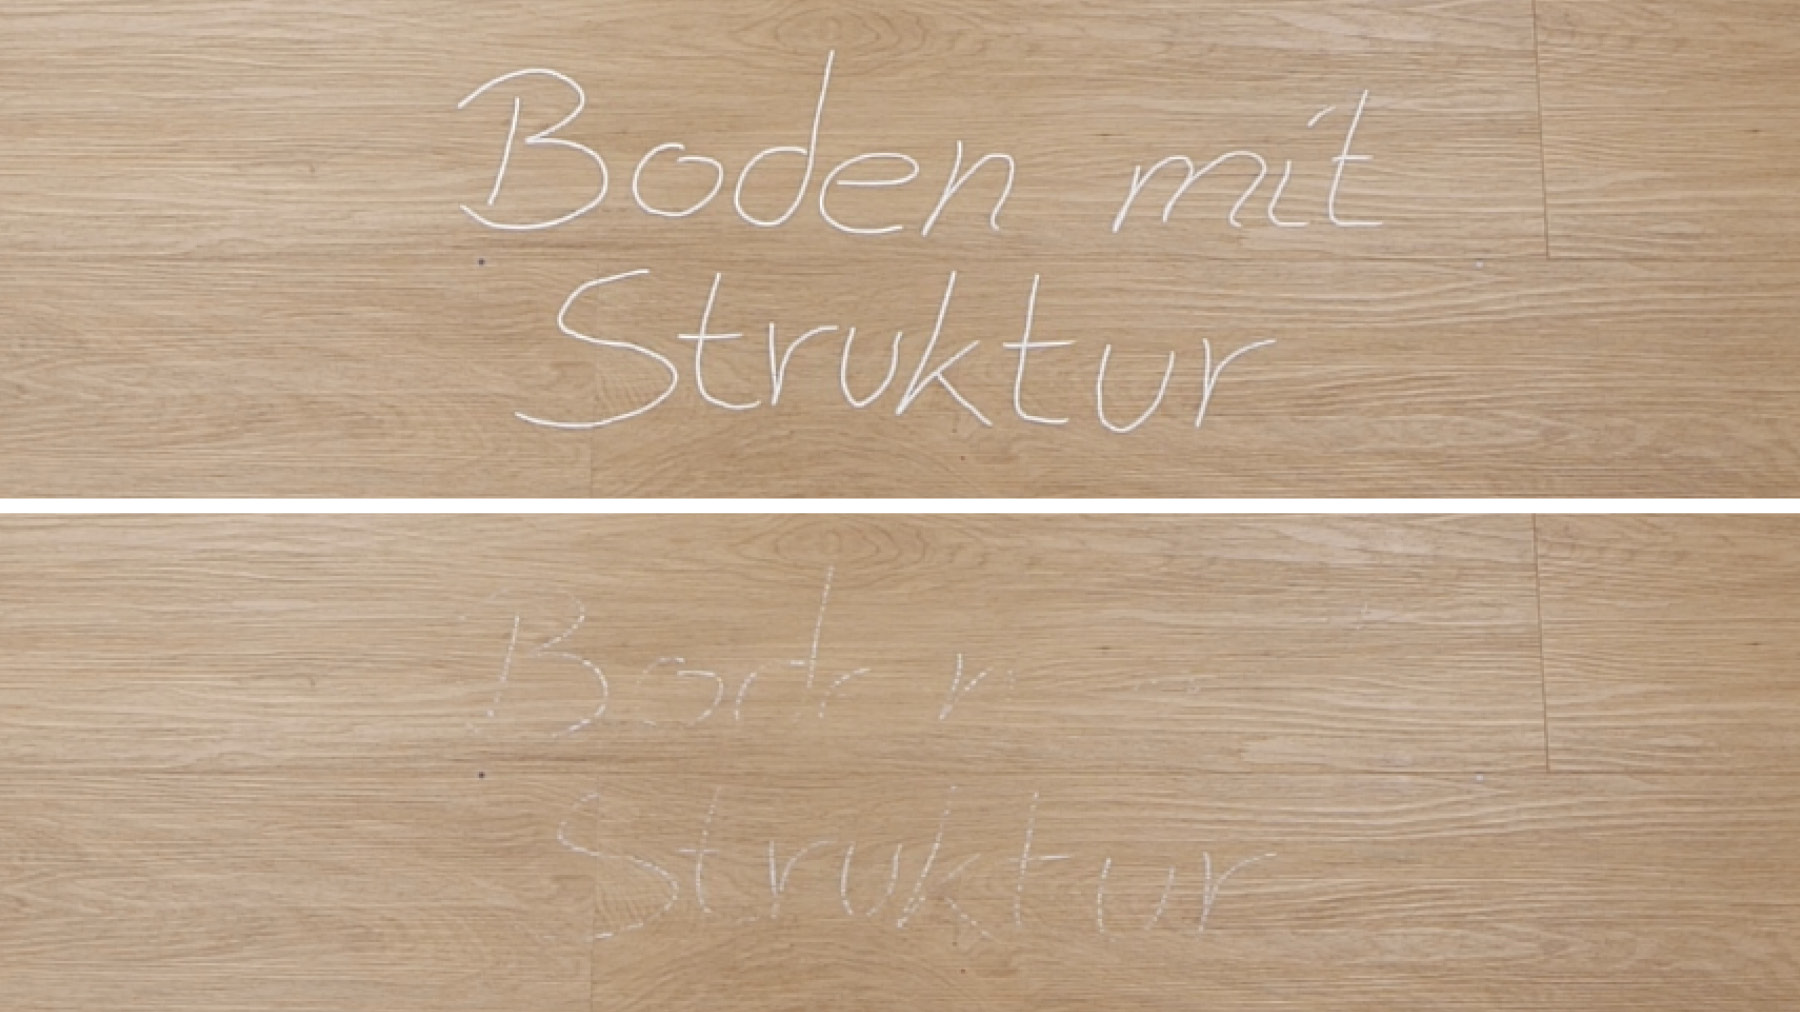 Boden mit
Struktur
Boden
Struktur